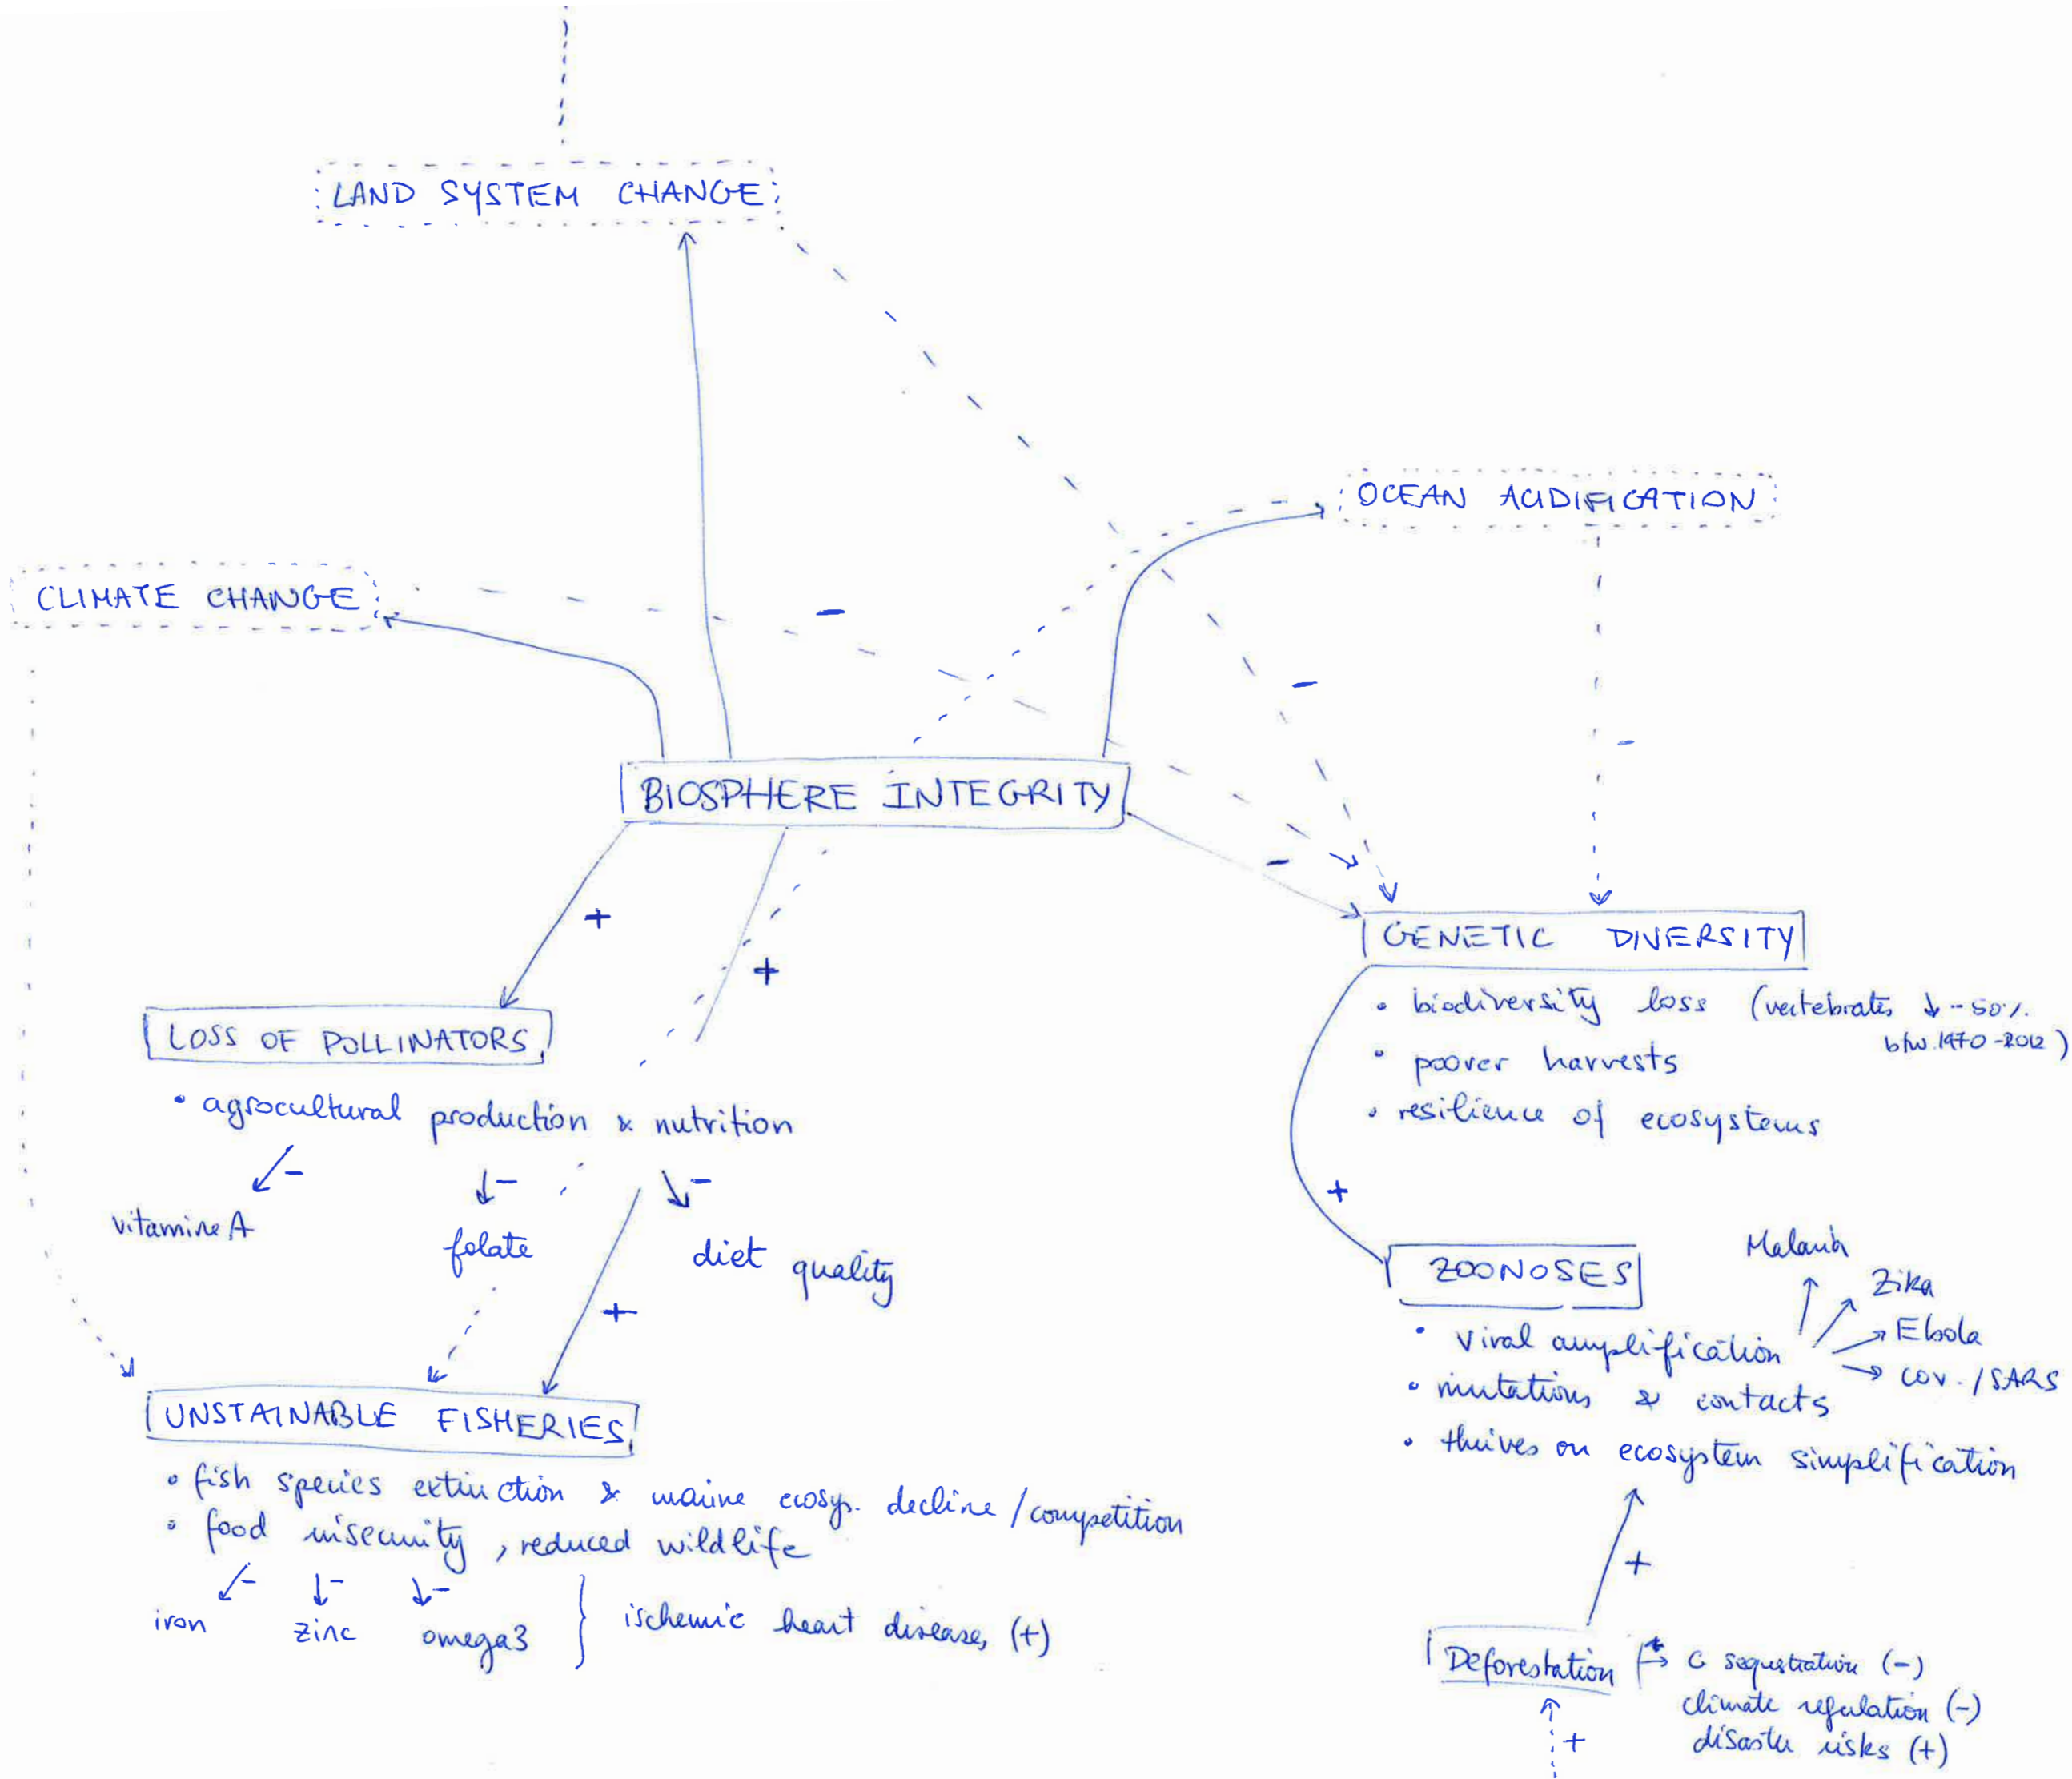 LAND SYSTEM CHANGE
OCEAN ACIDIFICATION
CLIMATE CHANGE
-
-
-
BIOSPHERE INTEGRITY
-
+
+
GENETIC DIVERSITY
• biodiversity loss (vertebrates ↓ -50%
btw. 1970-2012)
• poorer harvests
• resilience of ecosystems
LOSS OF POLLINATORS
• agrocultural production & nutrition
↙- ↓- ↘-
vitamine A folate diet quality
+
+
ZOONOSES
Malaria
Zika
Ebola
cov. / SARS
• viral amplification
• mutations & contacts
• thrives on ecosystem simplification
UNSTAINABLE FISHERIES
• fish species extinction & marine ecosys. decline / competition
• food insecurity, reduced wildlife
↙- ↓- ↘-
iron zinc omega3 } ischemic heart diseases (+)
+
Deforestation → C sequstration (-)
climate regulation (-)
disaster risks (+)
+